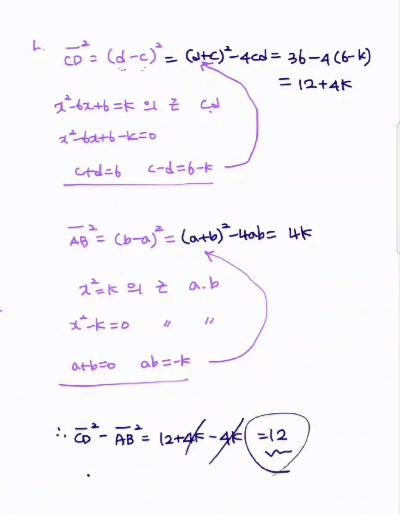 ㄴ. CD² = (d-c)² = (d+c)²-4cd = 36-4(6-k)
= 12+4k
x²-6x+6=k 의 근 c,d
x²-6x+6-k=0
c+d=6 c-d=6-k
AB² = (b-a)² = (a+b)²-4ab = 4k
x²=k 의 근 a.b
x²-k=0 〃 〃
a+b=0 ab=-k
∴ CD² - AB² = 12+4k-4k =12